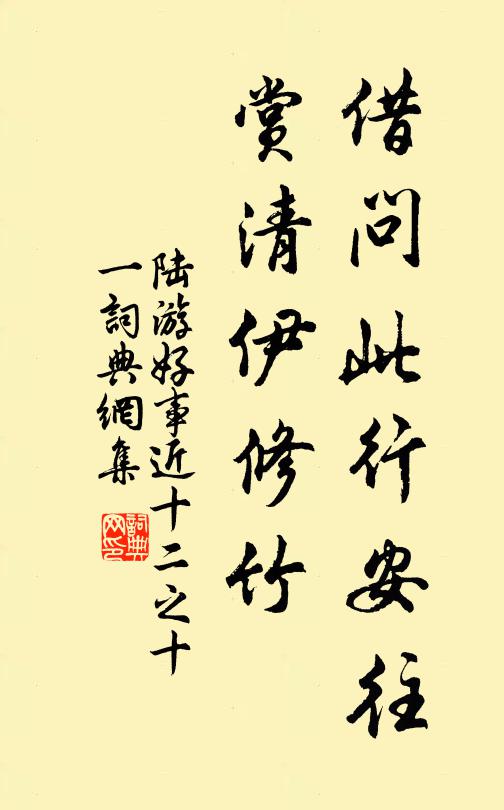 借问此行安往
赏清伊修竹
陆游好事近十二之十
一词典网集
词典网印